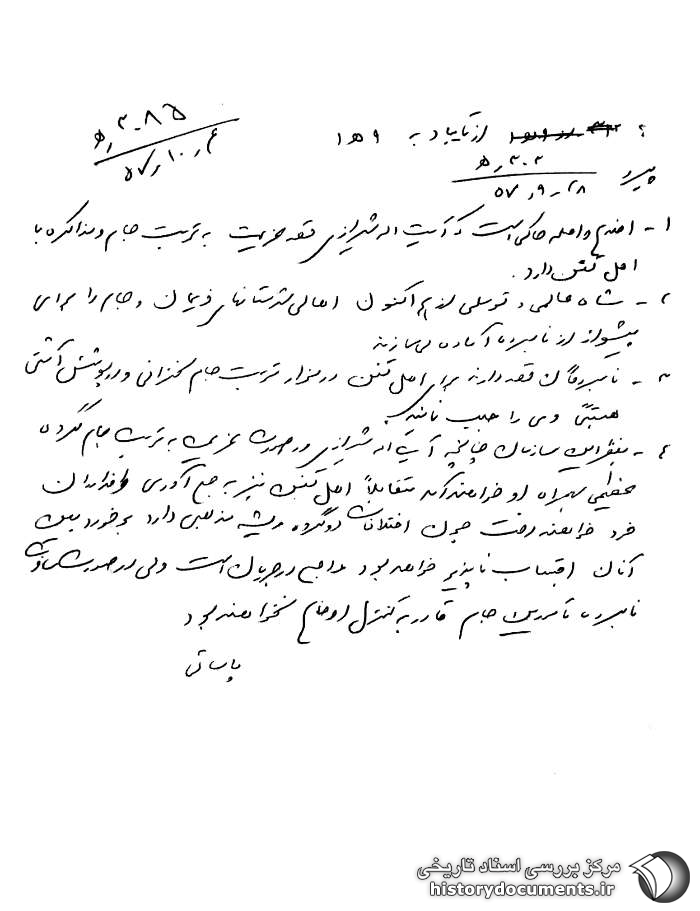 از تایباد به ۹ ه‍ ۱
۳۰۸۵ / ه‍
۵۷/۱۰/۴
پیرو
۳۰۲۰ / ه‍
۵۷/۹/۲۸
۱- اخبار واصله حاکی است که آیت اله شیرازی قصد عزیمت به تربت جام و مذاکره با
اهل تسنن دارد.
۲- شاه عالمی و توسلی لزوم اکنون اهالی شهرستانهای فریمان و جام را برای
پیشواز از نامبرده آماده می‌سازند
۳- نامبردگان قصد دارند برای اهل تسنن در مزار تربت جام سخنرانی و در پوشش آشتی
همبستگی وی را جلب نمایند.
۴- بنظر این سازمان چنانچه آیت اله شیرازی در صورت عزیمت به تربت جام گروه
عظیمی بهمراه او خواهند آمد متقابلاً اهل تسنن نیز به جمع آوری طرفداران
خود خواهند پرداخت چون اختلافات دو گروه ریشه مذهبی دارد برخورد بین
آنان اجتناب ناپذیر خواهد بود مراجع در جریان است ولی در صورت مسافرت
نامبرده مأمورین جام قادر به کنترل اوضاع نخواهند بود
مرکز بررسی اسناد تاریخی
historydocuments.ir